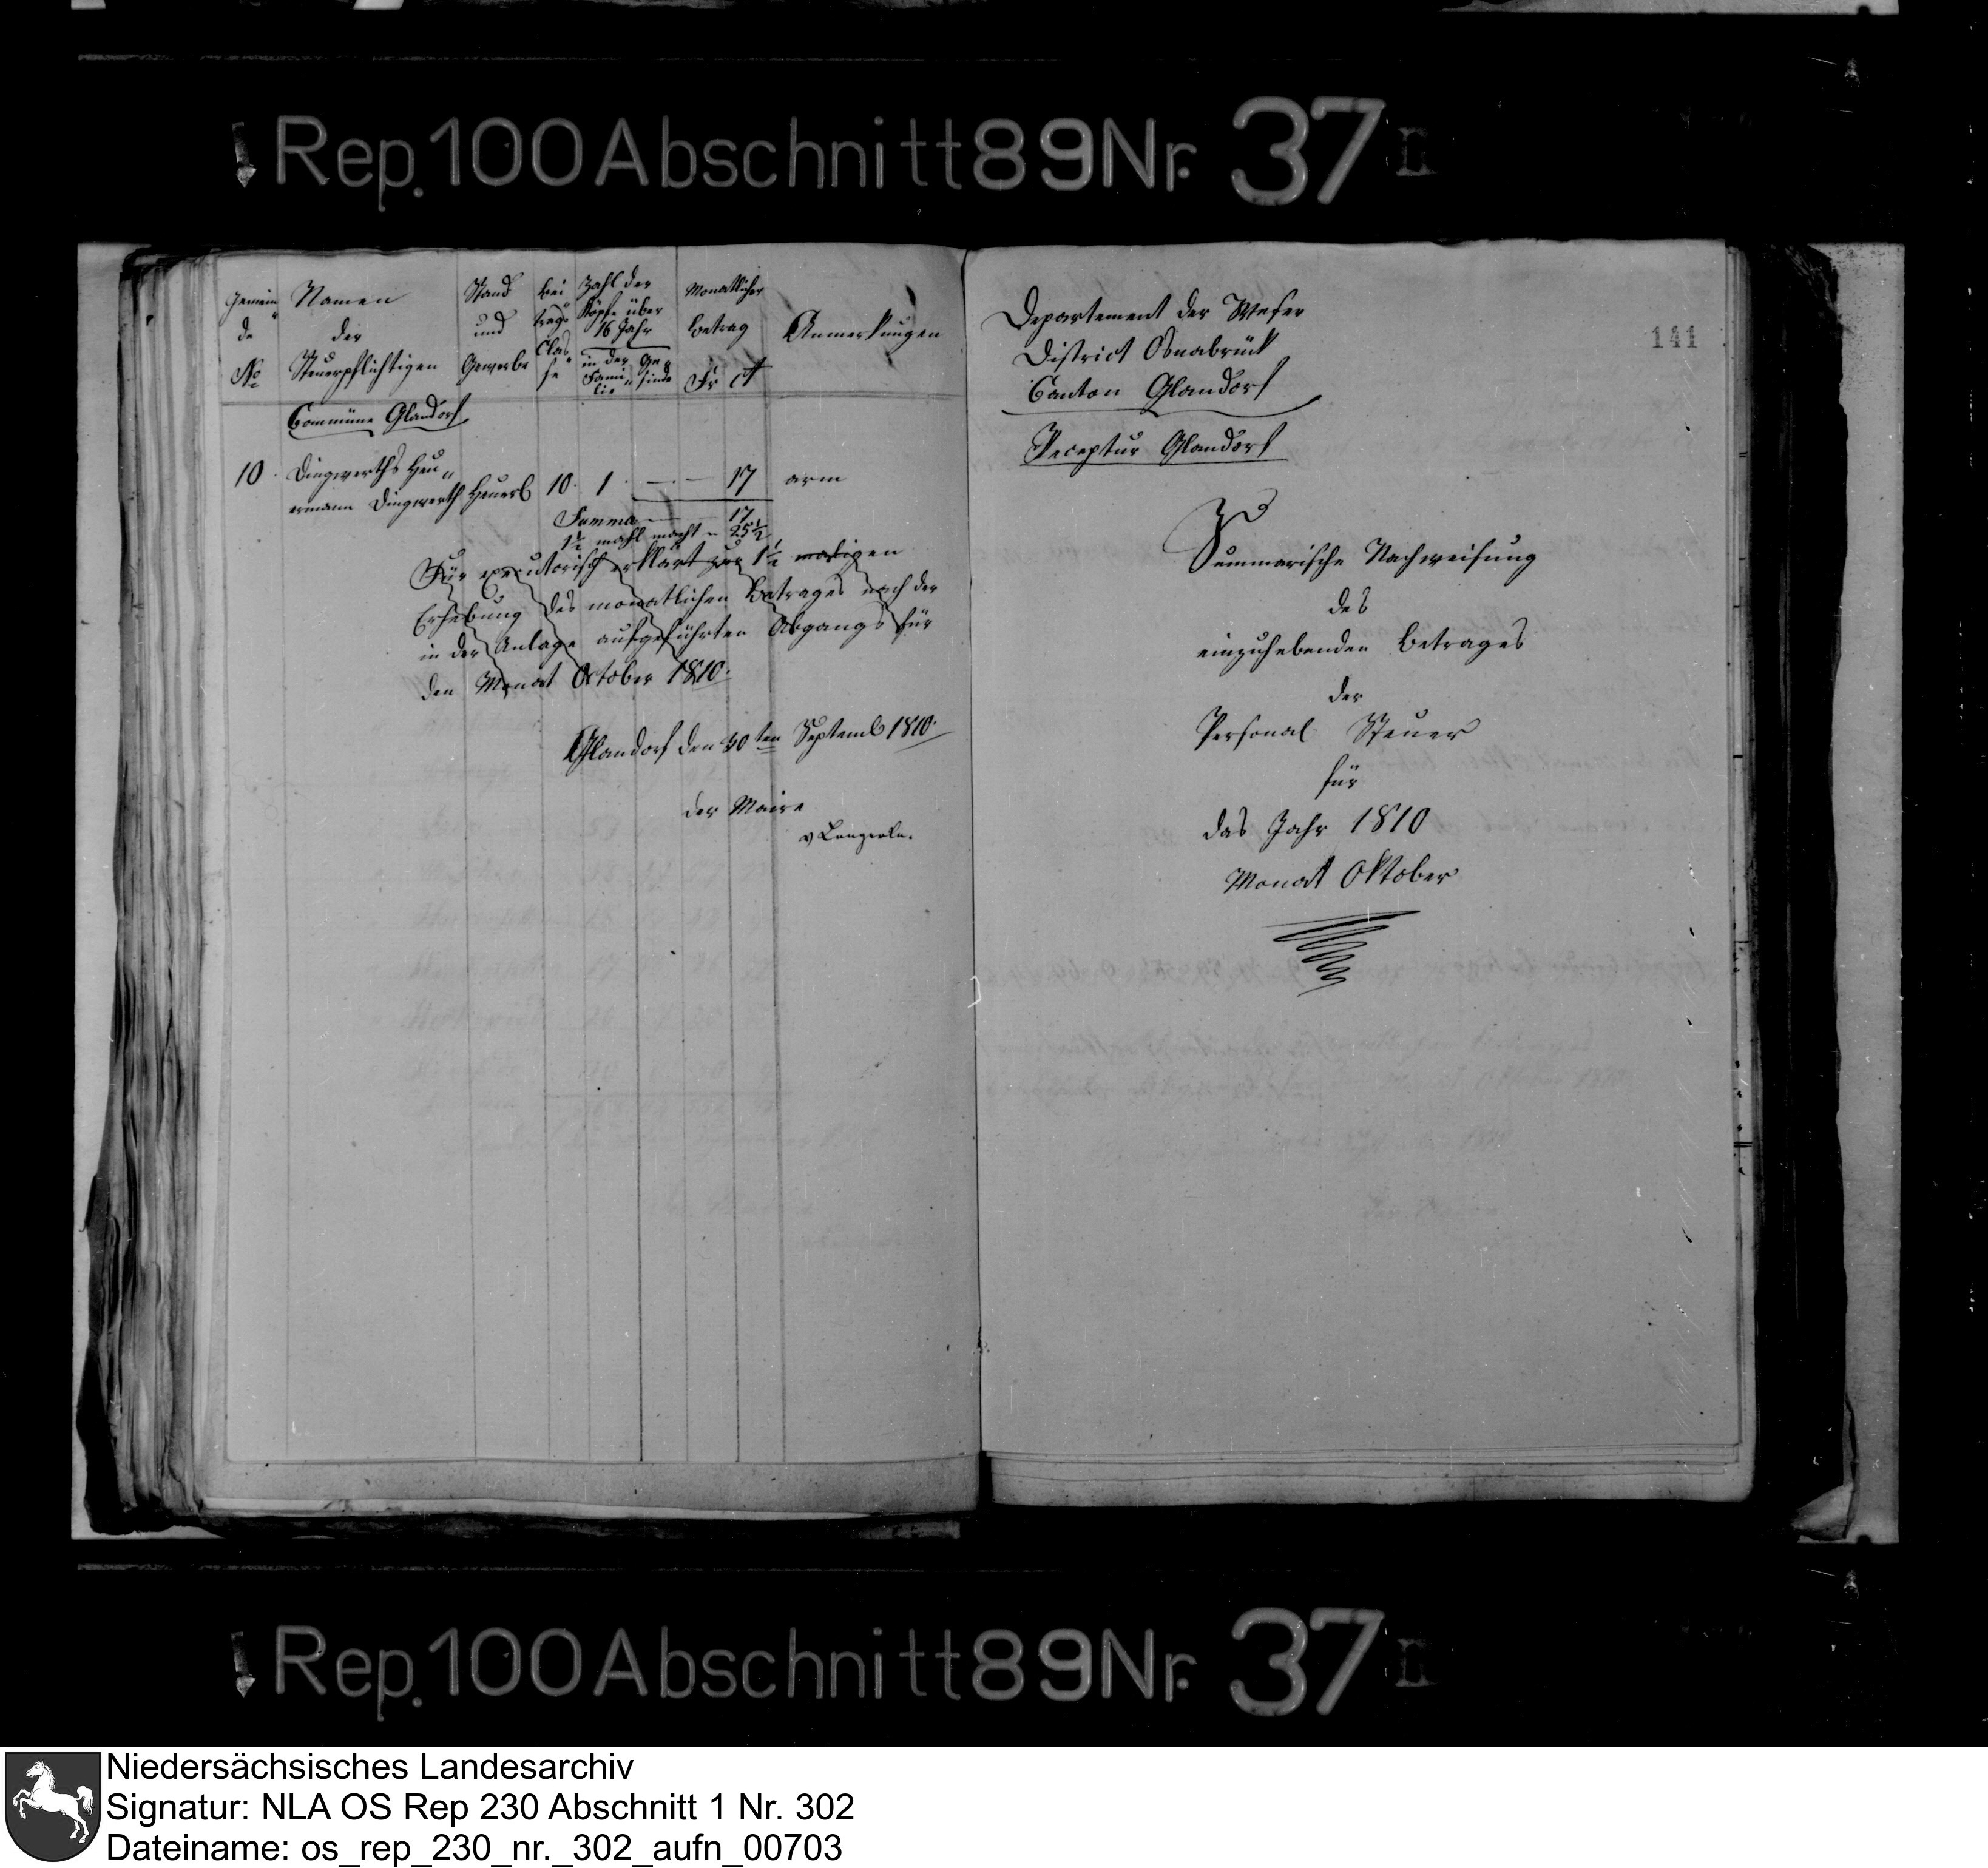 Rep. 100 Abschnitt 89 Nr. 37 II
Gemein„ Namen Stand Bei„ Zahl der Monatlicher
de der und trags Köpfe über Betrag Anmerkungen
No Steuerpflichtigen Gewerbe Clas„ 16 Jahr
se in der Ge„ Fr ct
Fami„ sinde
lie
Commüne Glandorf
10. Dingwerths Heu„
ermann Dingwerth Heuerl 10. 1. — — 17 arm
Summa — 17
1½ mahl macht - 25½
Für executorisch erklärt zur 1½ maligen
Erhebung des monatlichen Betrages nach der
in der Anlage aufgeführten Abgangs für
den Monat October 1810.
Glandorf den 30ten Septemb 1810.
der Maire
141
Departement der Weser
District Osnabrück
Canton Glandorf
Receptur Glandorf
Summarische Nachweisung
des
einzuhebenden Betrages
der
Personal Steuer
für
das Jahr 1810
Monat Oktober
Rep. 100 Abschnitt 89 Nr. 37 II
Niedersächsisches Landesarchiv
Signatur: NLA OS Rep 230 Abschnitt 1 Nr. 302
Dateiname: os_rep_230_nr._302_aufn_00703